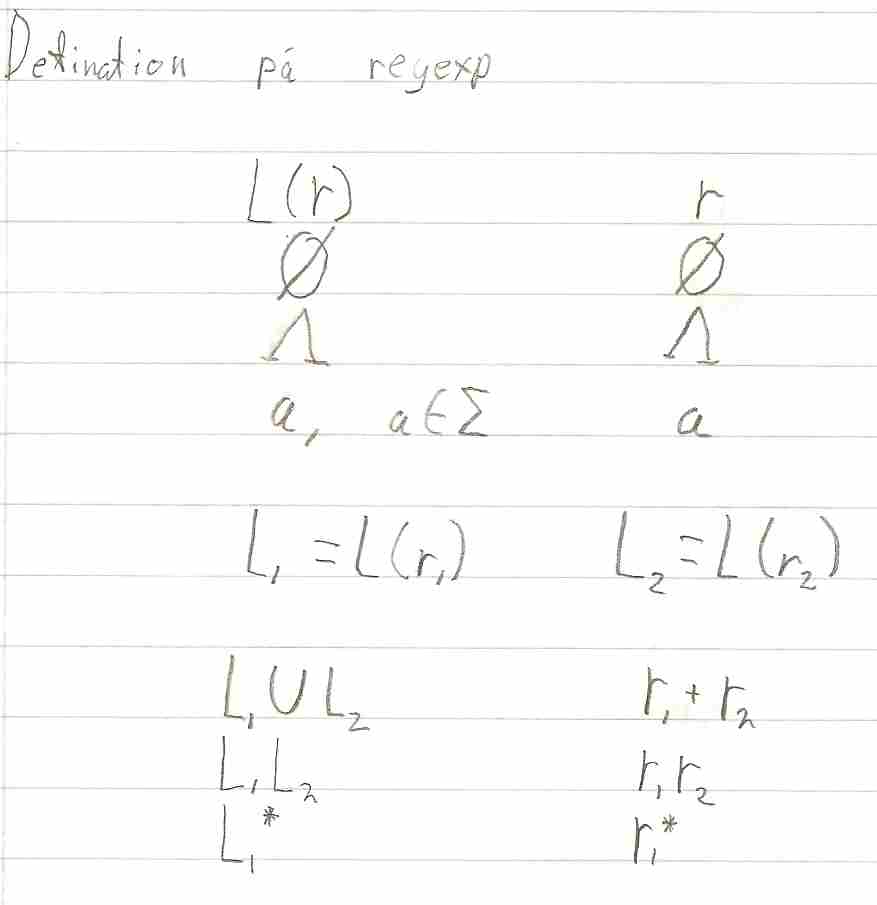 Defination på regexp
L(r) r
Ø Ø
Λ Λ
a, a∈Σ a
L₁ = L(r₁) L₂ = L(r₂)
L₁ ∪ L₂ r₁ + r₂
L₁L₂ r₁r₂
L₁* r₁*